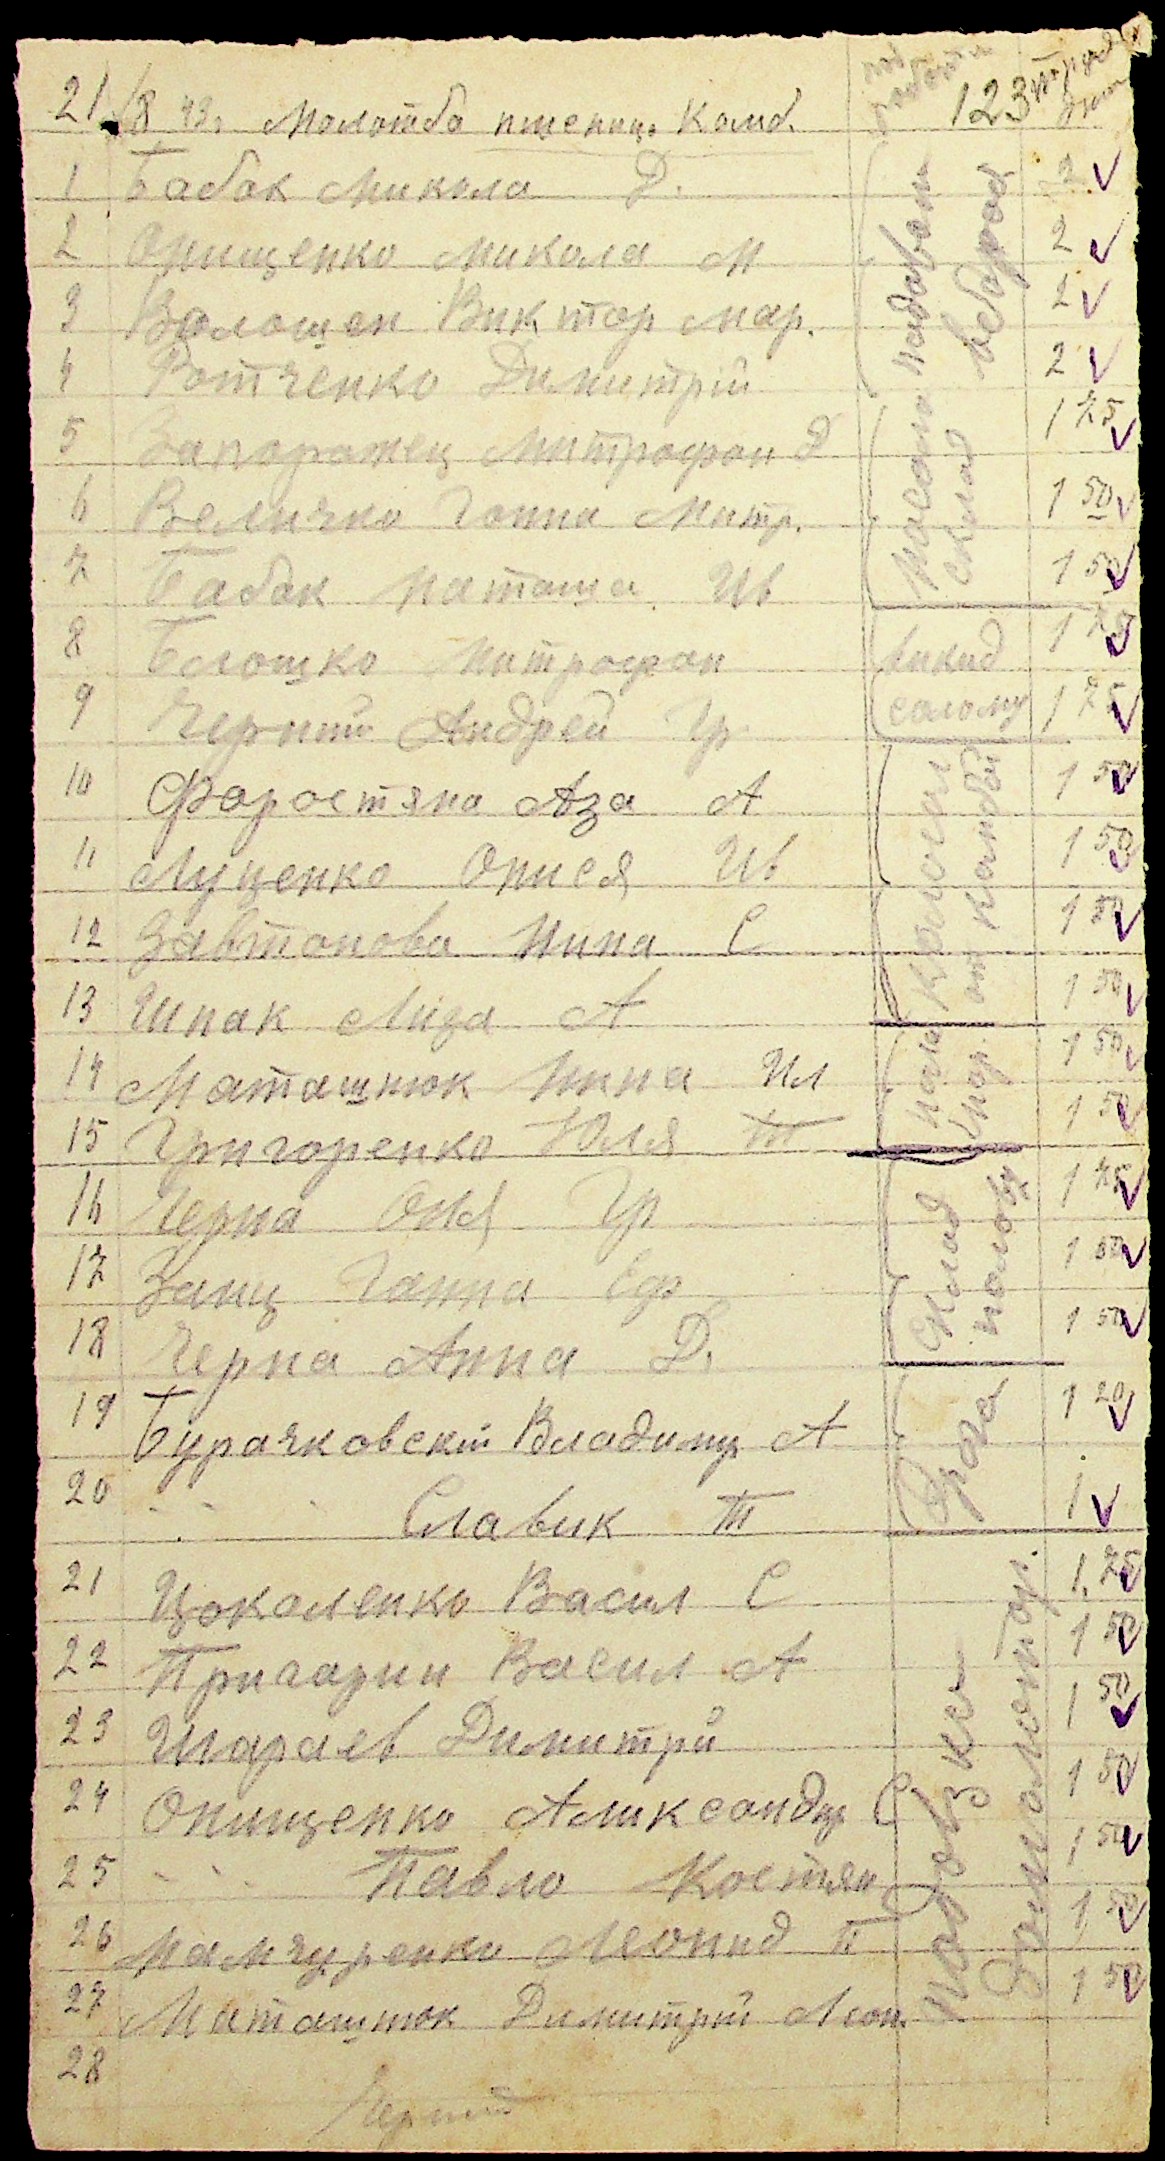 21/8 43. Молотба пшениц. Комб. 123 труд дни
1 Бабак Микола Д. 2
2 Онищенко Микола М 2
3 Волошен Виктор Мар. 2
4 Вотченко Димитрій 2
5 Запоражец Митрофан Д 1 75
6 Величко Ганна Митр. 1 50
7 Бабак Наташа Ив 1 50
8 Блошко Митрофан 1 75
9 Черний Андрей Гр 1 75
викид солому
10 Форостяна Аза А 1 50
11 Луценко Онися Ив 1 50
12 Завтонова Нина С 1 50
13 Шпак Лиза А 1 50
14 Маташнюк Нина Ил 1 50
15 Григоренко Юля Т 1 50
16 Черна Оля Гр 1 75
17 Заиц Ганна Еф 1 50
18 Черна Анна Д. 1 50
склад полову
19 Бурачковский Владимир А 1 20
20 - - Славик Т 1
21 Цоколенко Васил С 1.75
22 Пригарин Васил А 1 50
23 Шараев Димитрй 1 50
24 Онищенко Аликсандр С 1 50
25 - - Павло Костян 1 50
26 Мамчуренко Леонид П 1 50
27 Маташнюк Димитрий Леон. 1 50
28
Черний